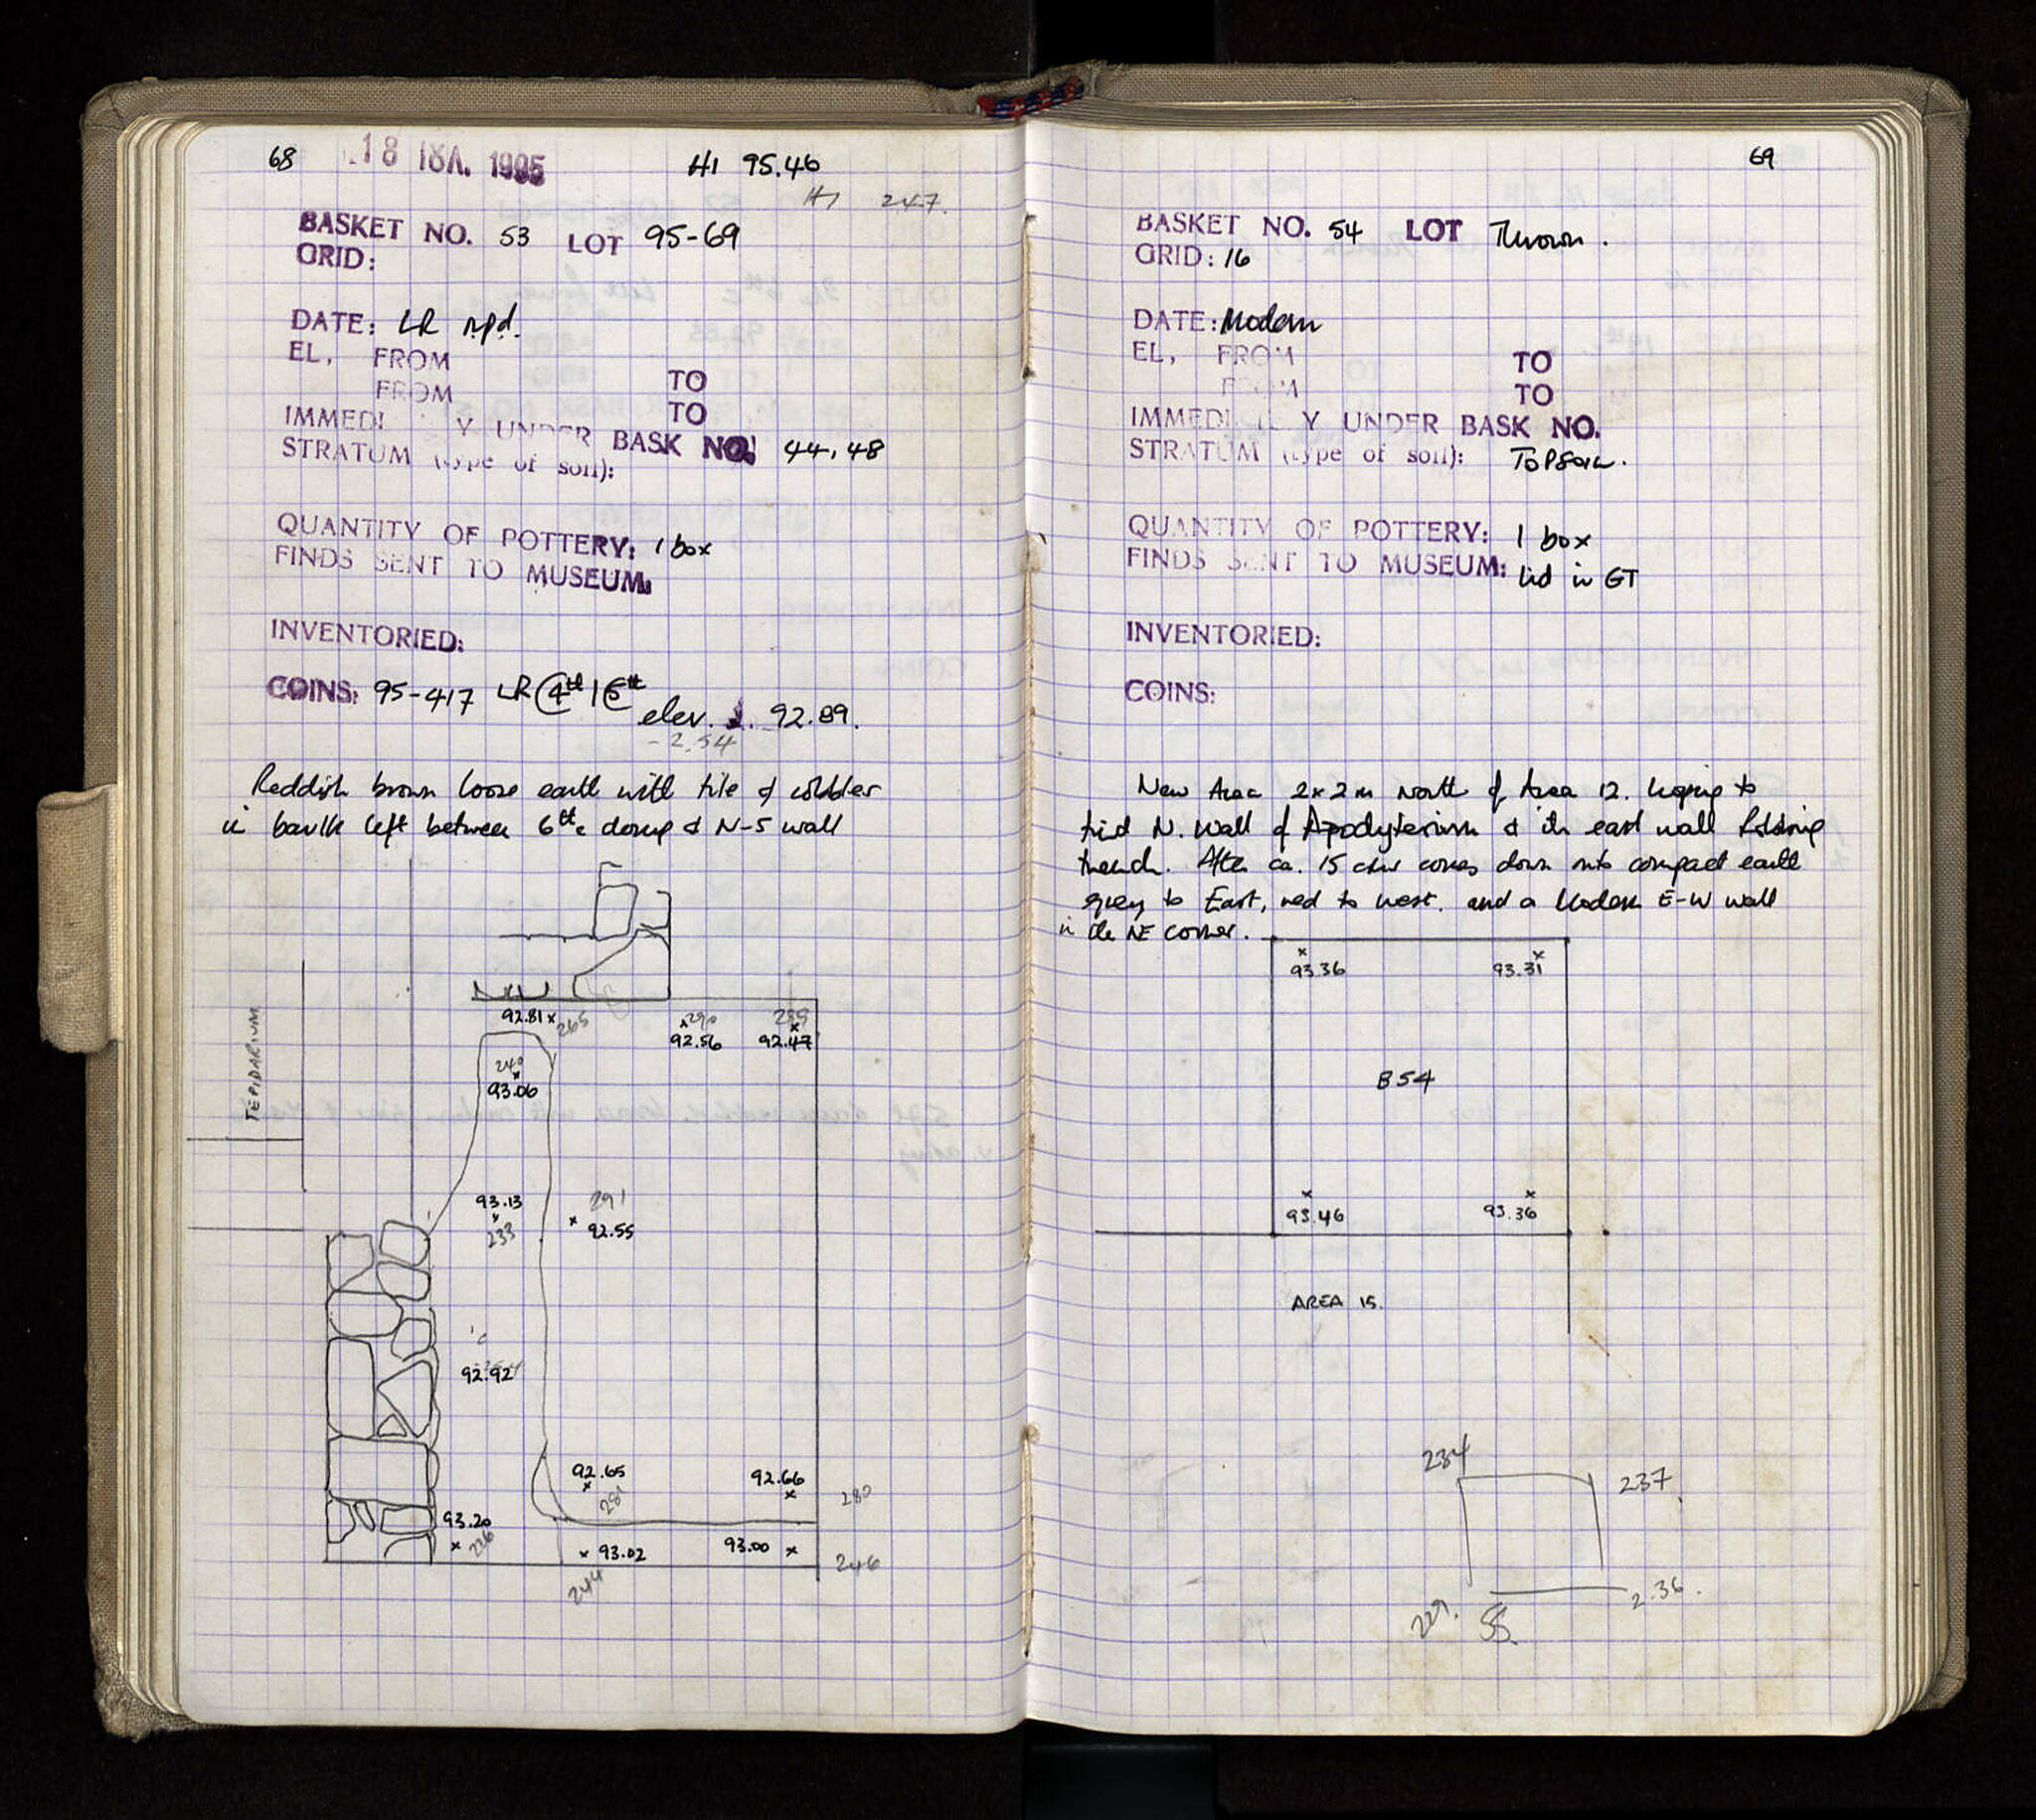 68 18 ΙΟΛ. 1995 HI 95.46
HI 247.
BASKET NO. 53 LOT 95-69
GRID:
DATE: LR npd.
EL, FROM TO
FROM TO
IMMEDI Y UNDER BASK NO. 44, 48
STRATUM (type of soil):
QUANTITY OF POTTERY: 1 box
FINDS SENT TO MUSEUM:
INVENTORIED:
COINS: 95-417 LR
elev. 92.89.
-2.54
Reddish brown loose earth with tile & cobbles
in baulk left between 6th c dump & N-S wall
TEPIDARIUM
92.81 x 265
290 92.56
289 92.47
240
93.06
93.13
233
291
92.55
92.92
92.65
281
92.66
280
93.20
226
x 93.02
244
93.00 x
246
69
BASKET NO. 54 LOT Thrown.
GRID: 16
DATE: Modern
EL, FROM TO
FROM TO
IMMEDI Y UNDER BASK NO.
STRATUM (type of soil): TOPSOIL.
QUANTITY OF POTTERY: 1 box
FINDS SENT TO MUSEUM: lid in GT
INVENTORIED:
COINS:
New Area 2x2m North of Area 12. hoping to
find N. Wall of Apodyterium & its east wall robbing
trench. After ca. 15 cms comes down onto compact earth
grey to East, red to west. and a Modern E-W wall
in the NE corner.
93.36 93.31
B54
93.46 93.36
AREA 15.
234
237
2.36.
227.